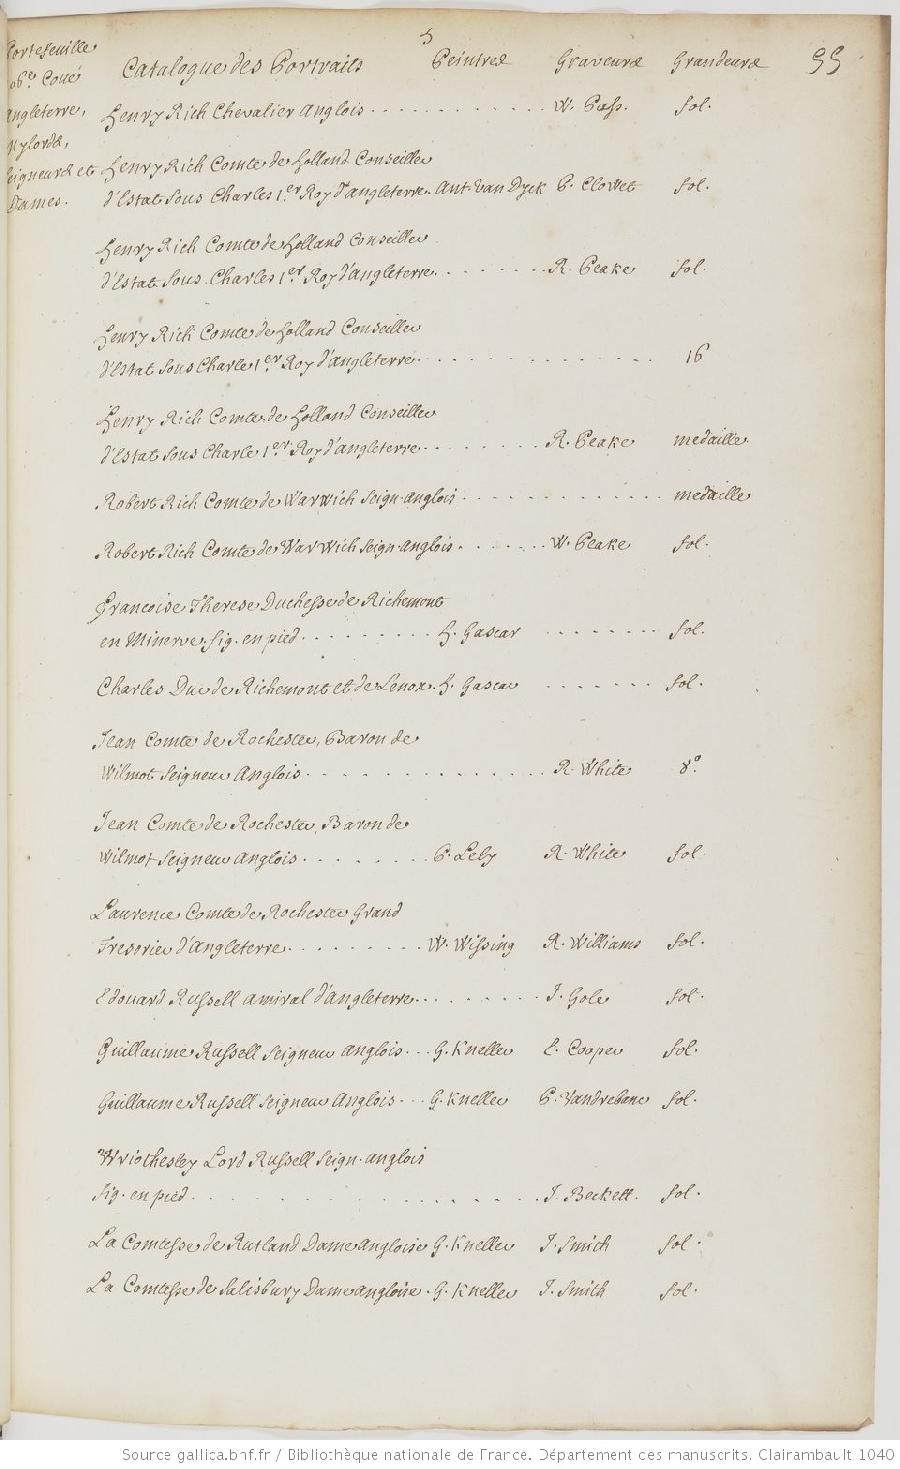 5
Portefeuille
106e Coué
Angleterre,
Mylords,
Seigneurs et
Dames.
Catalogue des Portraits Peintres Graveurs Grandeurs 55
Henry Rich Chevalier Anglois . . . . . . . . . . . W. Pass. fol.
Henry Rich Comte de Holland Conseiller
d'Estat sous Charles 1.er Roy d'angleterre. Ant. Van Dyck P. Clovet fol.
Henry Rich Comte de Holland Conseiller
d'Estat sous Charles 1.er Roy d'angleterre . . . . . . . . R. Peake fol.
Henry Rich Comte de Holland Conseiller
d'Estat sous Charle 1.er Roy d'angleterre . . . . . . . . . . . . . . . 16
Henry Rich Comte de Holland Conseiller
d'Estat sous Charle 1.er Roy d'angleterre . . . . . . . . R. Peake medaille
Robert Rich Comte de Warwich Seign. anglois . . . . . . . . . . . . . medaille
Robert Rich Comte de Warwich Seign. anglois . . . . . . . W. Peake fol.
Francoise Therese Duchesse de Richemont
en Minerve fig. en pied . . . . . . . . . H. Gascar . . . . . . . . fol.
Charles Duc de Richemont et de Lenox . H. Gascar . . . . . . . fol.
Jean Comte de Rochester, Baron de
Wilmot Seigneur Anglois . . . . . . . . . . . . . . R. White 8.o
Jean Comte de Rochester, Baron de
Wilmot Seigneur anglois . . . . . . . P. Lely R. White fol
Laurence Comte de Rochester Grand
Tresorier d'angleterre . . . . . . . . . W. Wissing R. Williams fol.
Edouard Russell amiral d'angleterre . . . . . . . . . J. Gole fol.
Guillaume Russell Seigneur anglois . . . G. Kneller E. Cooper fol.
Guillaume Russell Seigneur Anglois . . . G. Kneller P. Vandrebanc fol.
Wriothesley Lord Russell Seign. anglois
fig. en pied . . . . . . . . . . . . . . . . J. Beckett. fol.
La Comtesse de Rutland Dame angloise G. Kneller J. Smith fol.
La Comtesse de Salisbury Dame angloise . G. Kneller J. Smith fol.
Source gallica.bnf.fr / Bibliothèque nationale de France. Département des manuscrits. Clairambault 1040